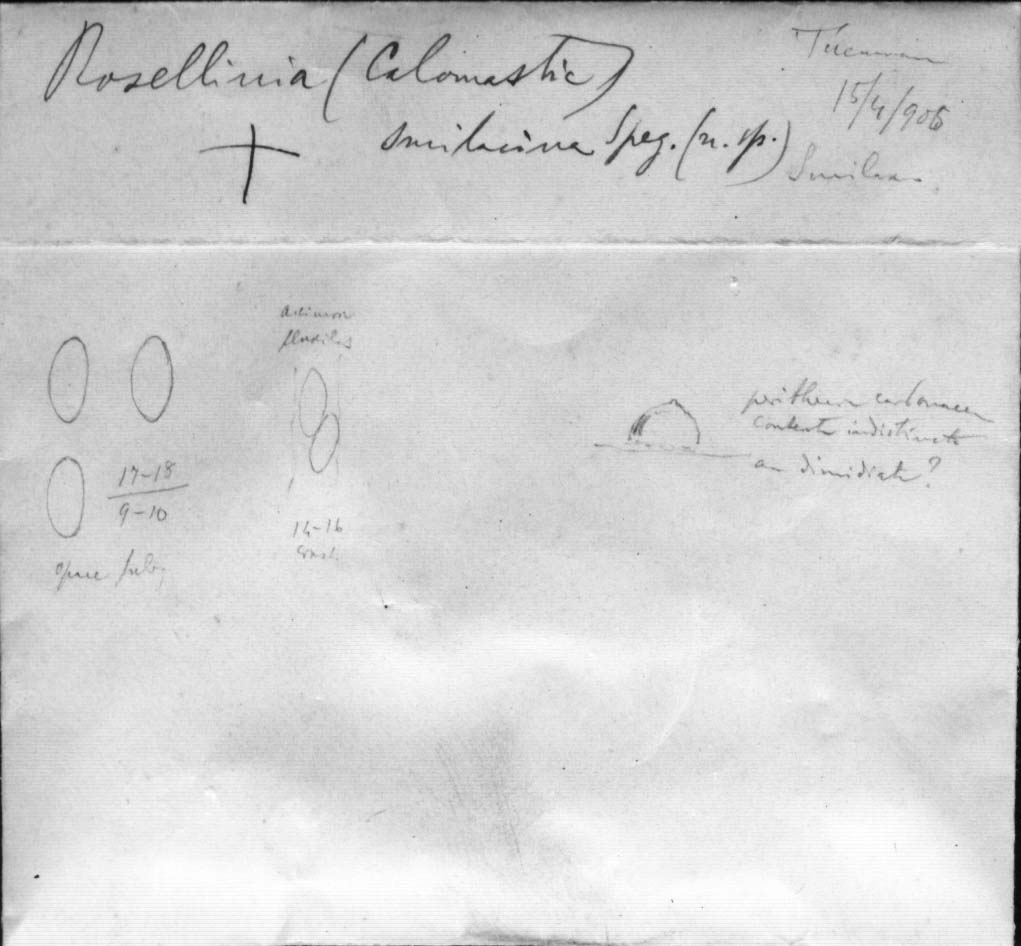 Rosellinia (Calomastic)
smilacina Speg. (n. sp.)
Tucuman
15/4/906
Smilax.
17-18
9-10
14-16
perithecia carbonacea
contextu indistincto
an dimidiata?